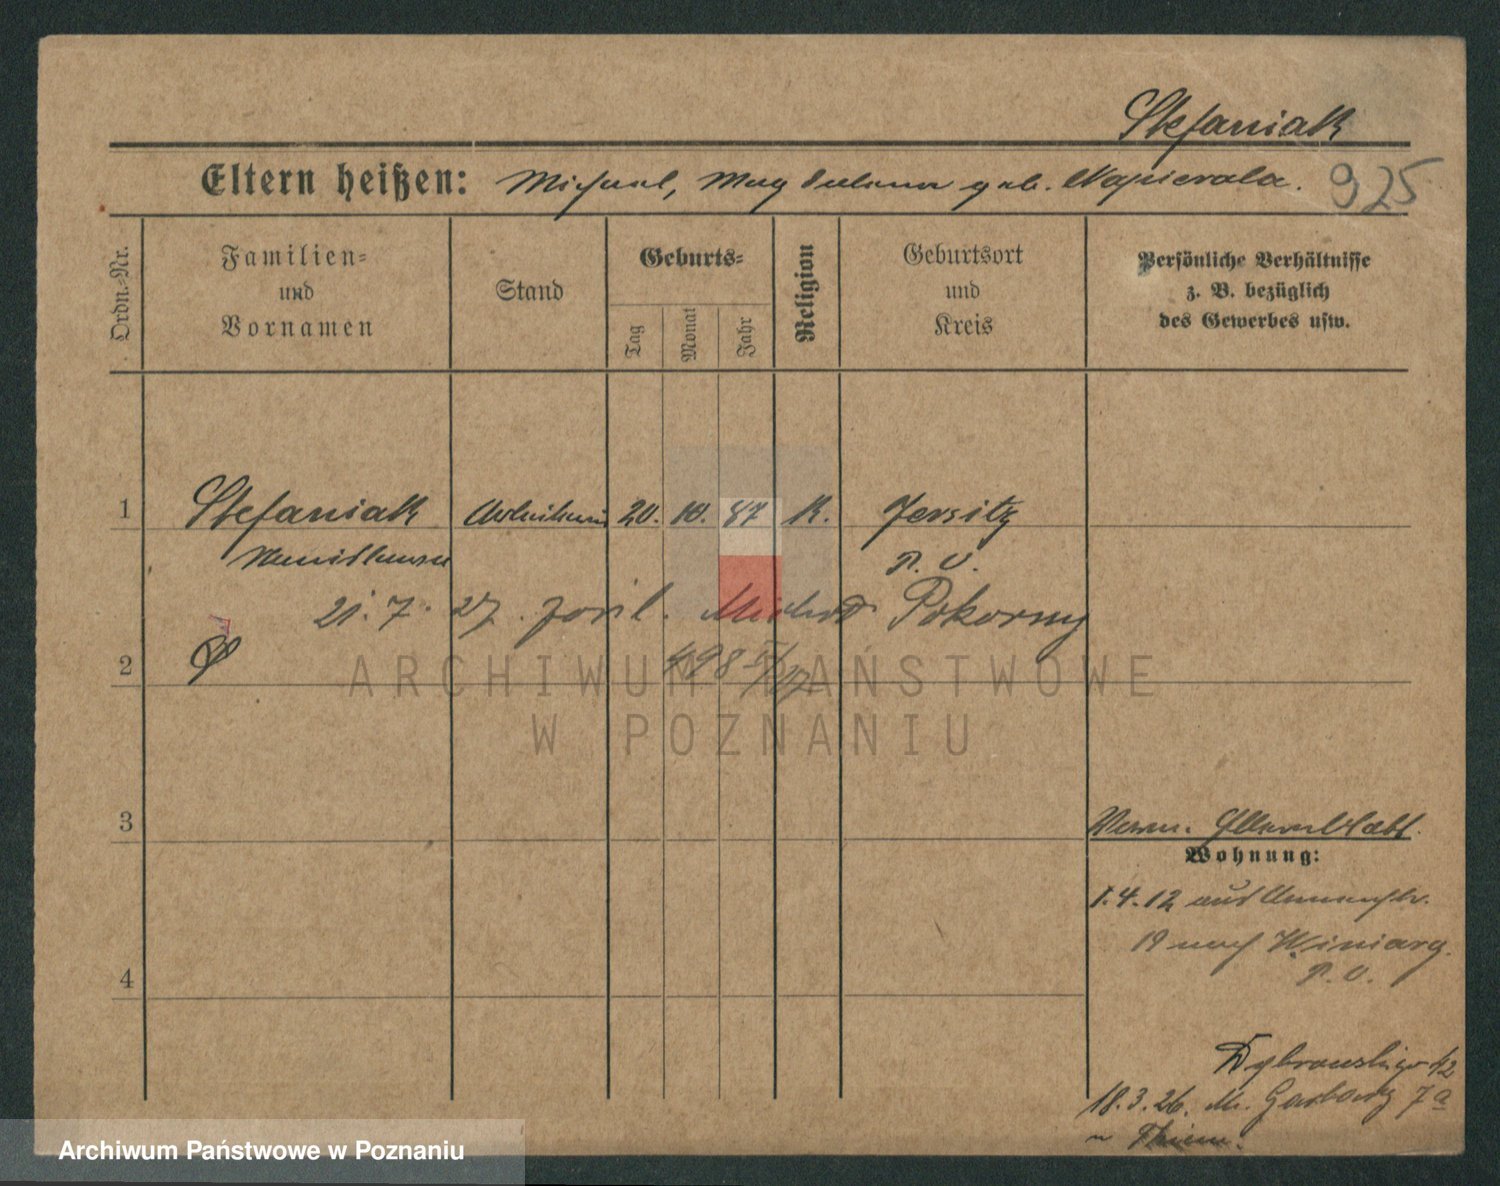 Stefaniak
Eltern heißen: Michael, Magdalena geb. Napierala. 925
Ordn.-Nr.
Familien-
und
Vornamen
Stand
Geburts-
Tag
Monat
Jahr
Religion
Geburtsort
und
Kreis
Persönliche Verhältnisse
z. B. bezüglich
des Gewerbes usw.
1 Stefaniak Arbeiterin 20. 10. 87 K. Jersitz
P. O.
21. 7. 27. Pokorny
2
498
ARCHIWUM PAŃSTWOWE
W POZNANIU
3
Wohnung:
1.4.12 aus
19 nach Winiary
P. O.
4
Dąbrowskiego 42
18.3.26. Garbary 7a
Archiwum Państwowe w Poznaniu